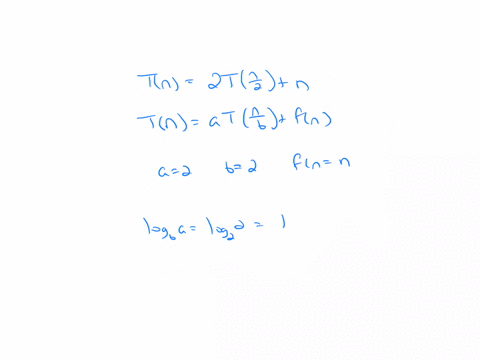 T(n) = 2T(n/2) + n
T(n) = aT(n/b) + f(n)
a=2 b=2 f(n = n
log_b a = log_2 2 = 1